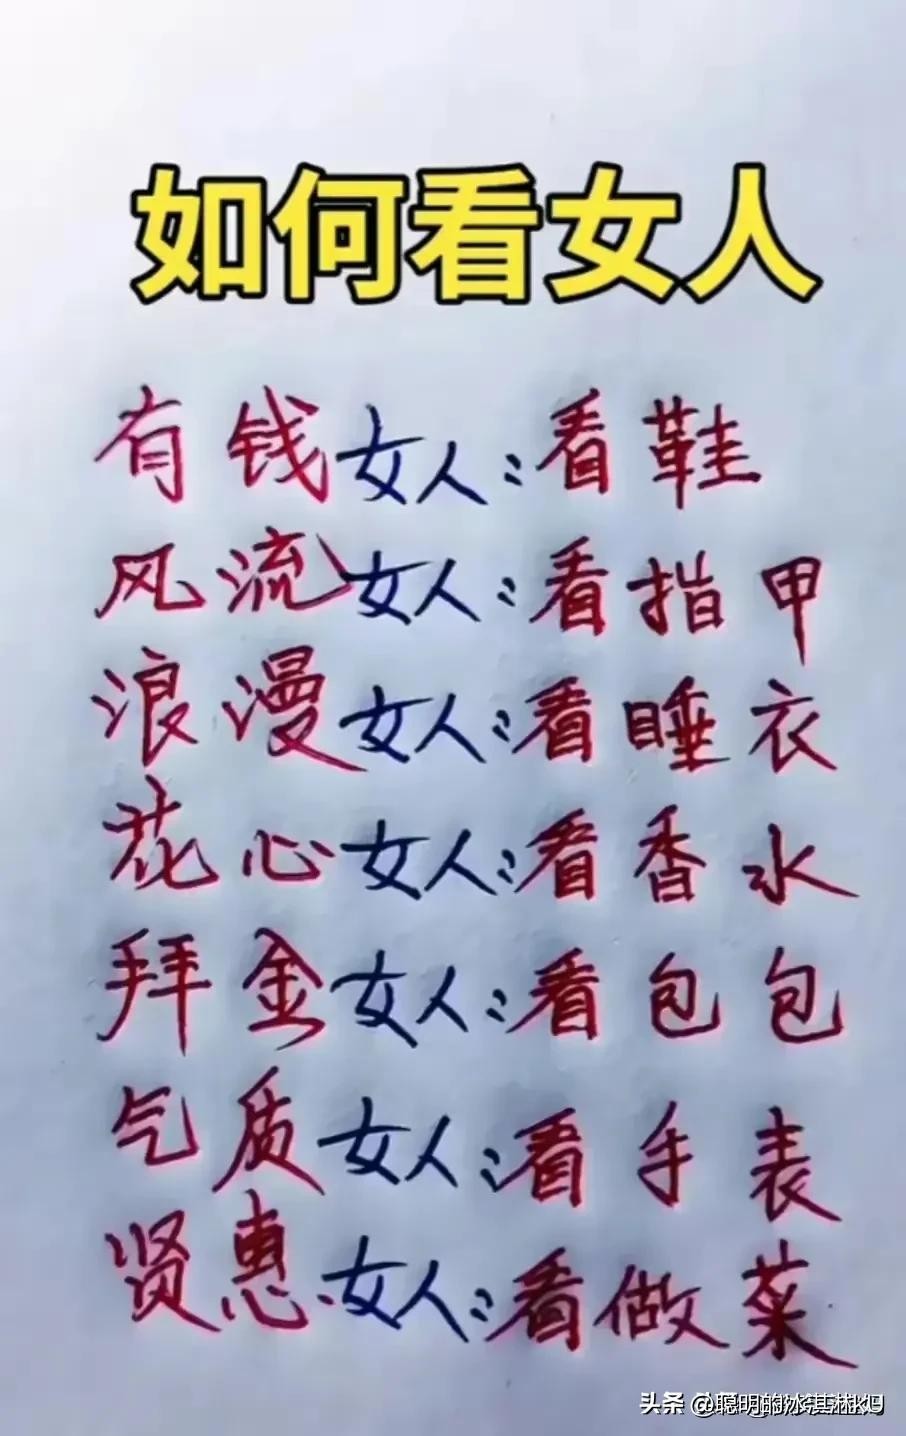 如何看女人
有钱女人：看鞋
风流女人：看指甲
浪漫女人：看睡衣
花心女人：看香水
拜金女人：看包包
气质女人：看手表
贤惠女人：看做菜
头条